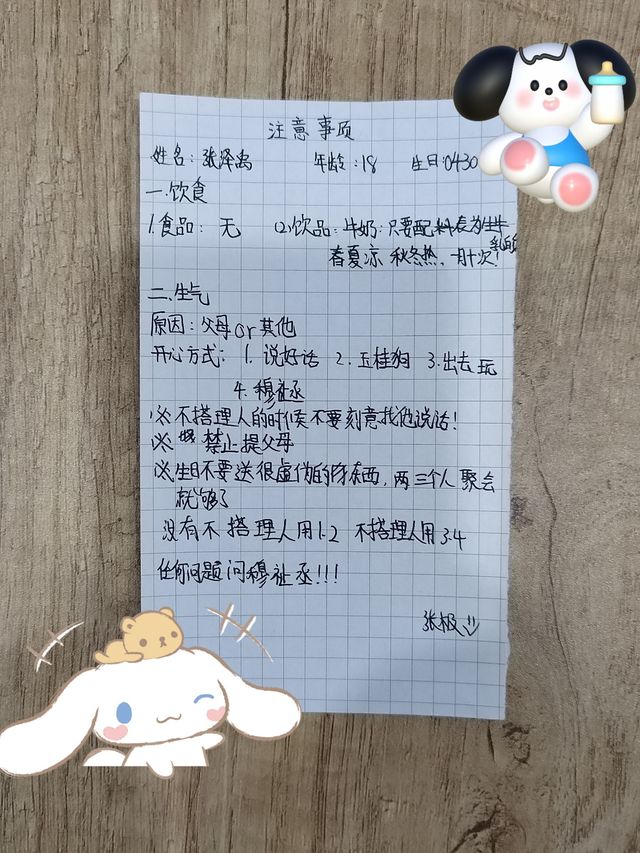 注意事项
姓名：张泽禹 年龄：18 生日：0430
一.饮食
1.食品：无 (2)饮品：牛奶：只要配料表为生牛乳的
春夏凉 秋冬热，一月十次！
二.生气
原因：父母or其他
开心方式：1.说好话 2.玉桂狗 3.出去玩
4.穆祉丞
※不搭理人的时候不要刻意找他说话！
※ 禁止提父母
※生日不要送很虚伪的东西，两三个人聚会
就够了
没有不搭理人用1.2 不搭理人用3.4
任何问题问穆祉丞！！！
张极